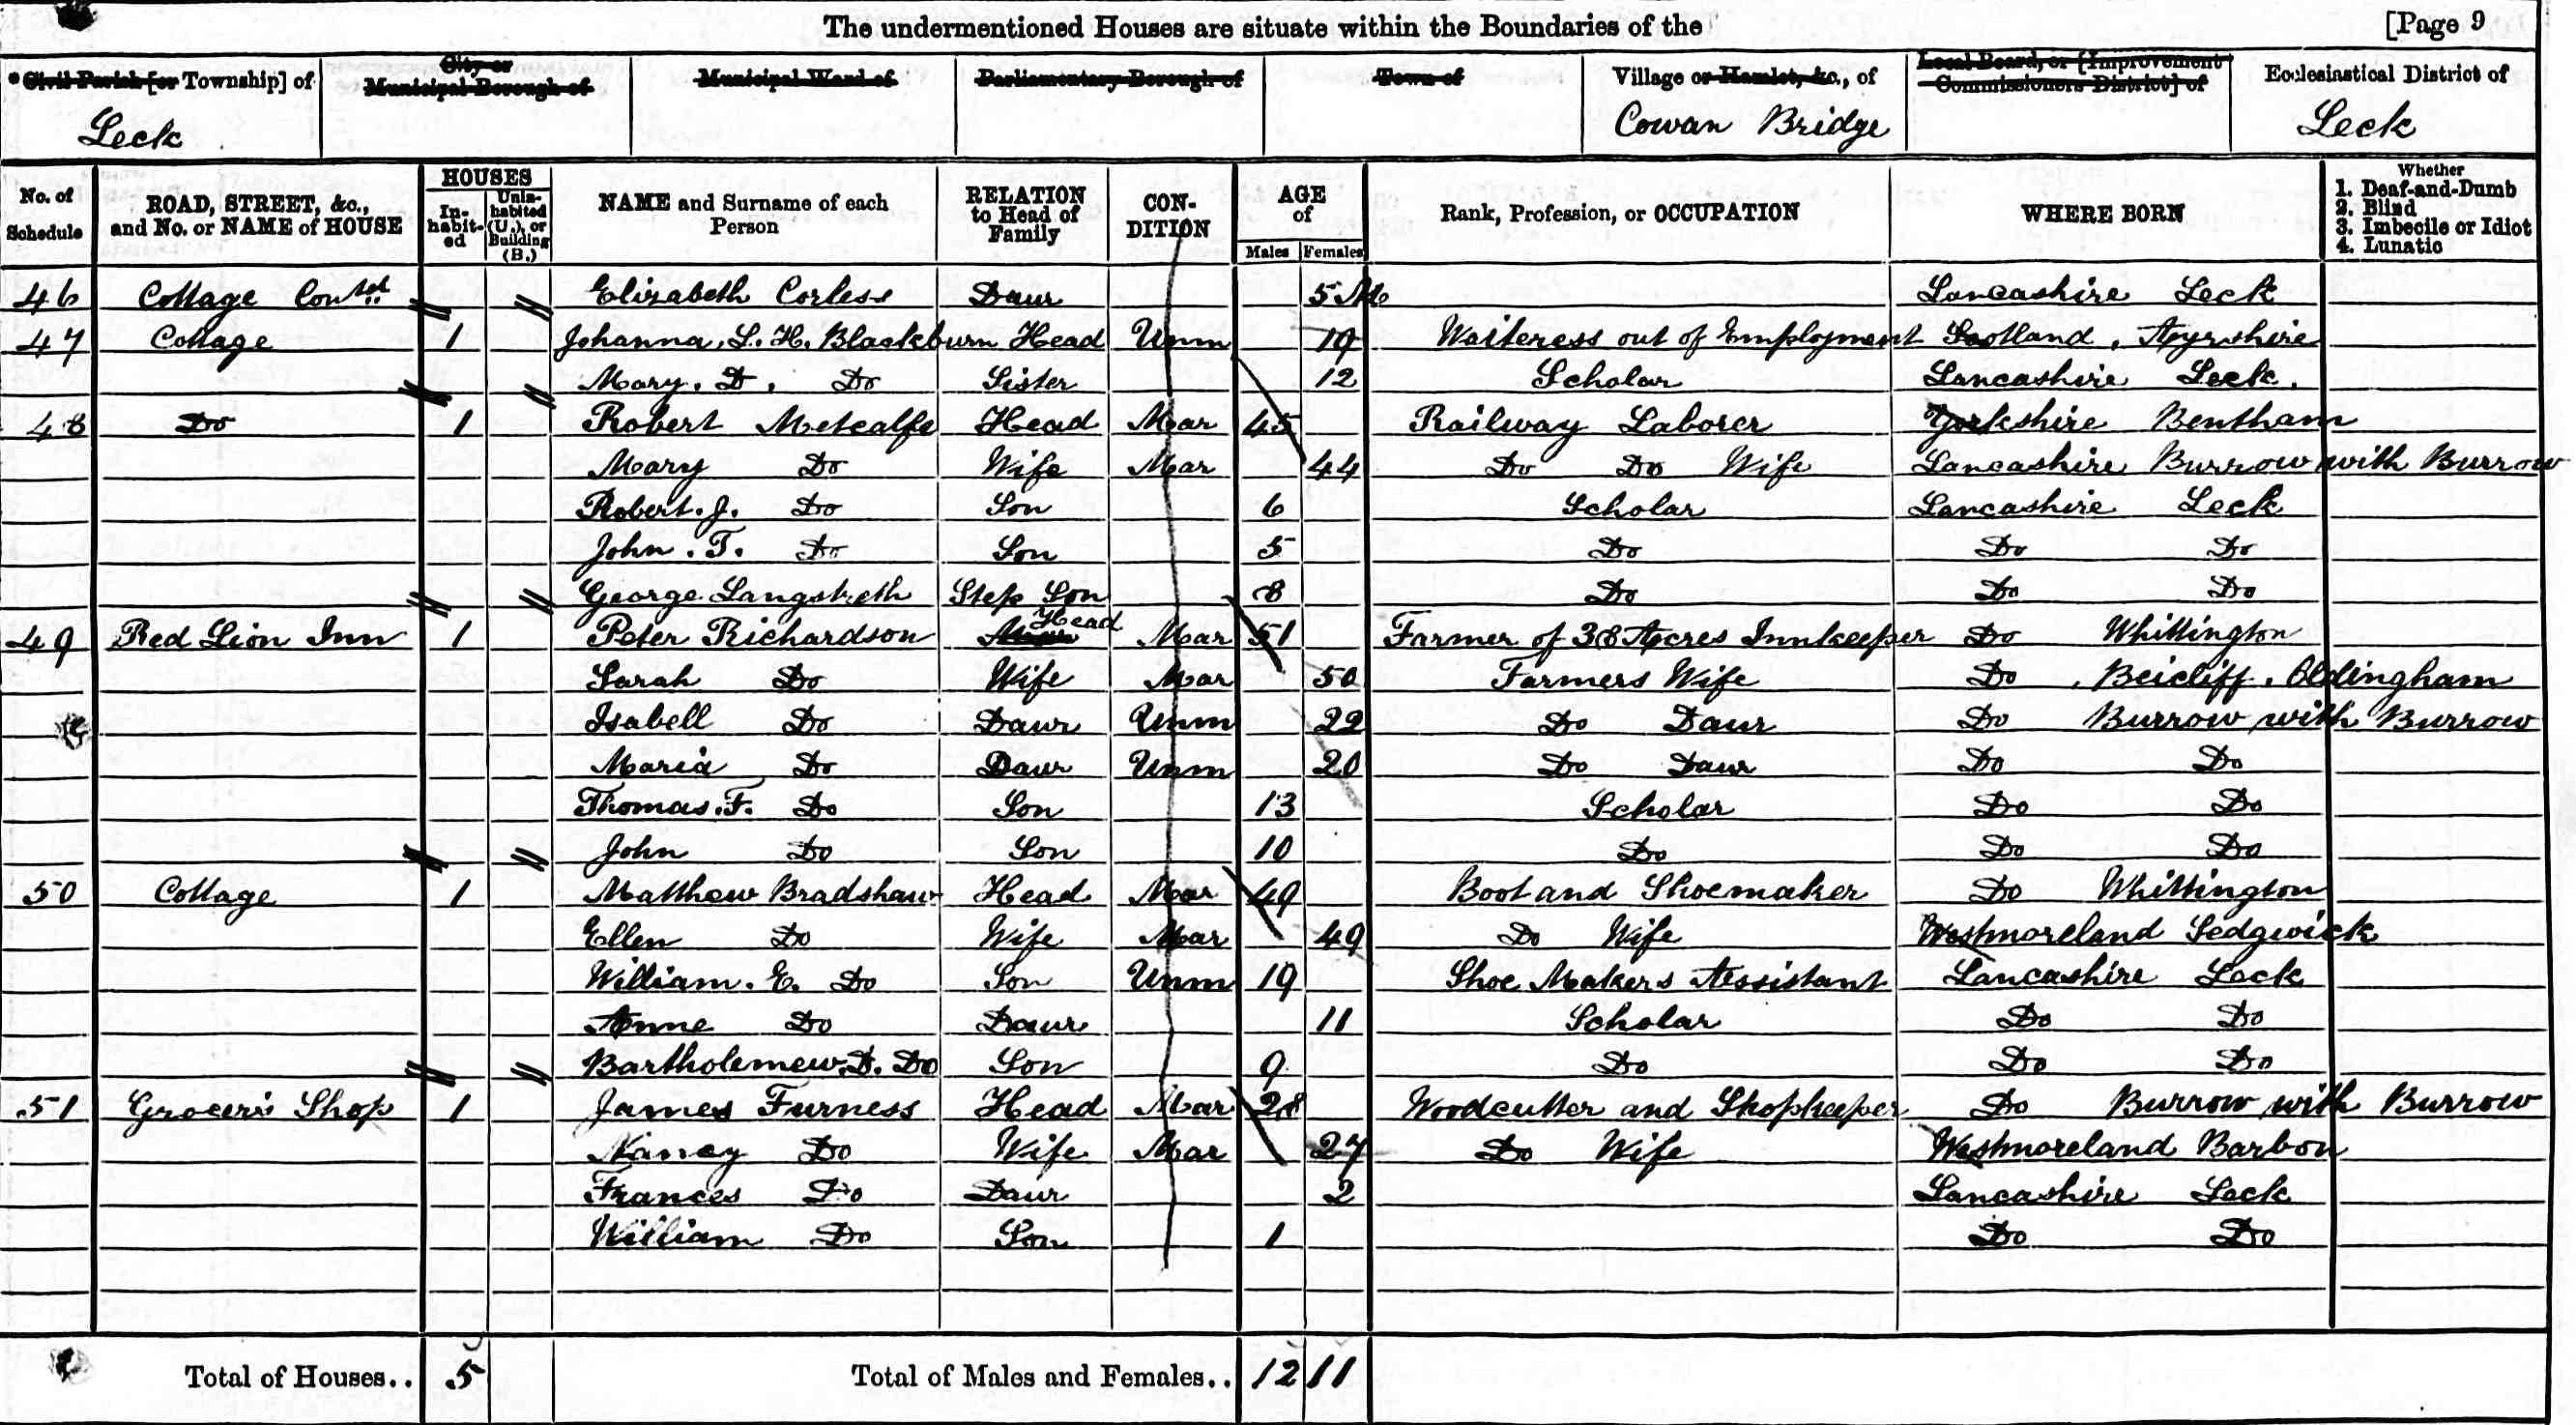 The undermentioned Houses are situate within the Boundaries of the [Page 9
*Civil Parish [or Township] of City or Municipal Borough of Municipal Ward of Parliamentary Borough of Town of Village or Hamlet, &c., of Local Board, or [Improvement Commissioners District] of Ecclesiastical District of
Leck Cowan Bridge Leck
No. of Schedule ROAD, STREET, &c., and No. or NAME of HOUSE HOUSES In-habit-ed Unin-habited (U.), or Building (B.) NAME and Surname of each Person RELATION to Head of Family CON-DITION AGE of Males Females Rank, Profession, or OCCUPATION WHERE BORN Whether 1. Deaf-and-Dumb 2. Blind 3. Imbecile or Idiot 4. Lunatic
46 Cottage Contd Elizabeth Corless Daur 5 Mo Lancashire Leck
47 Cottage 1 Johanna. L. H. Blackburn Head Unm 19 Waiteress out of Employment Scotland, Ayrshire
Mary. D. Do Sister 12 Scholar Lancashire Leck.
48 Do 1 Robert Metcalfe Head Mar 45 Railway Laborer Yorkshire Bentham
Mary Do Wife Mar 44 Do Do Wife Lancashire Burrow with Burrow
Robert. J. Do Son 6 Scholar Lancashire Leck
John. T. Do Son 5 Do Do Do
George Langstreth Step Son 8 Do Do Do
49 Red Lion Inn 1 Peter Richardson Head Mar 51 Farmer of 38 Acres Innkeeper Do Whittington
Sarah Do Wife Mar 50 Farmers Wife Do, Beicliff, Oldingham
Isabell Do Daur Unm 22 Do Daur Do Burrow with Burrow
Maria Do Daur Unm 20 Do Daur Do Do
Thomas. F. Do Son 13 Scholar Do Do
John Do Son 10 Do Do Do
50 Cottage 1 Matthew Bradshaw Head Mar 49 Boot and Shoemaker Do Whittington
Ellen Do Wife Mar 49 Do Wife Westmoreland Sedgwick
William. E. Do Son Unm 19 Shoe Makers Assistant Lancashire Leck
Anne Do Daur 11 Scholar Do Do
Bartholemew. D. Do Son 9 Do Do Do
51 Grocer's Shop 1 James Furness Head Mar 28 Woodcutter and Shopkeeper Do Burrow with Burrow
Nancy Do Wife Mar 27 Do Wife Westmoreland Barbon
Frances Do Daur 2 Lancashire Leck
William Do Son 1 Do Do
Total of Houses.. 5 Total of Males and Females.. 12 11